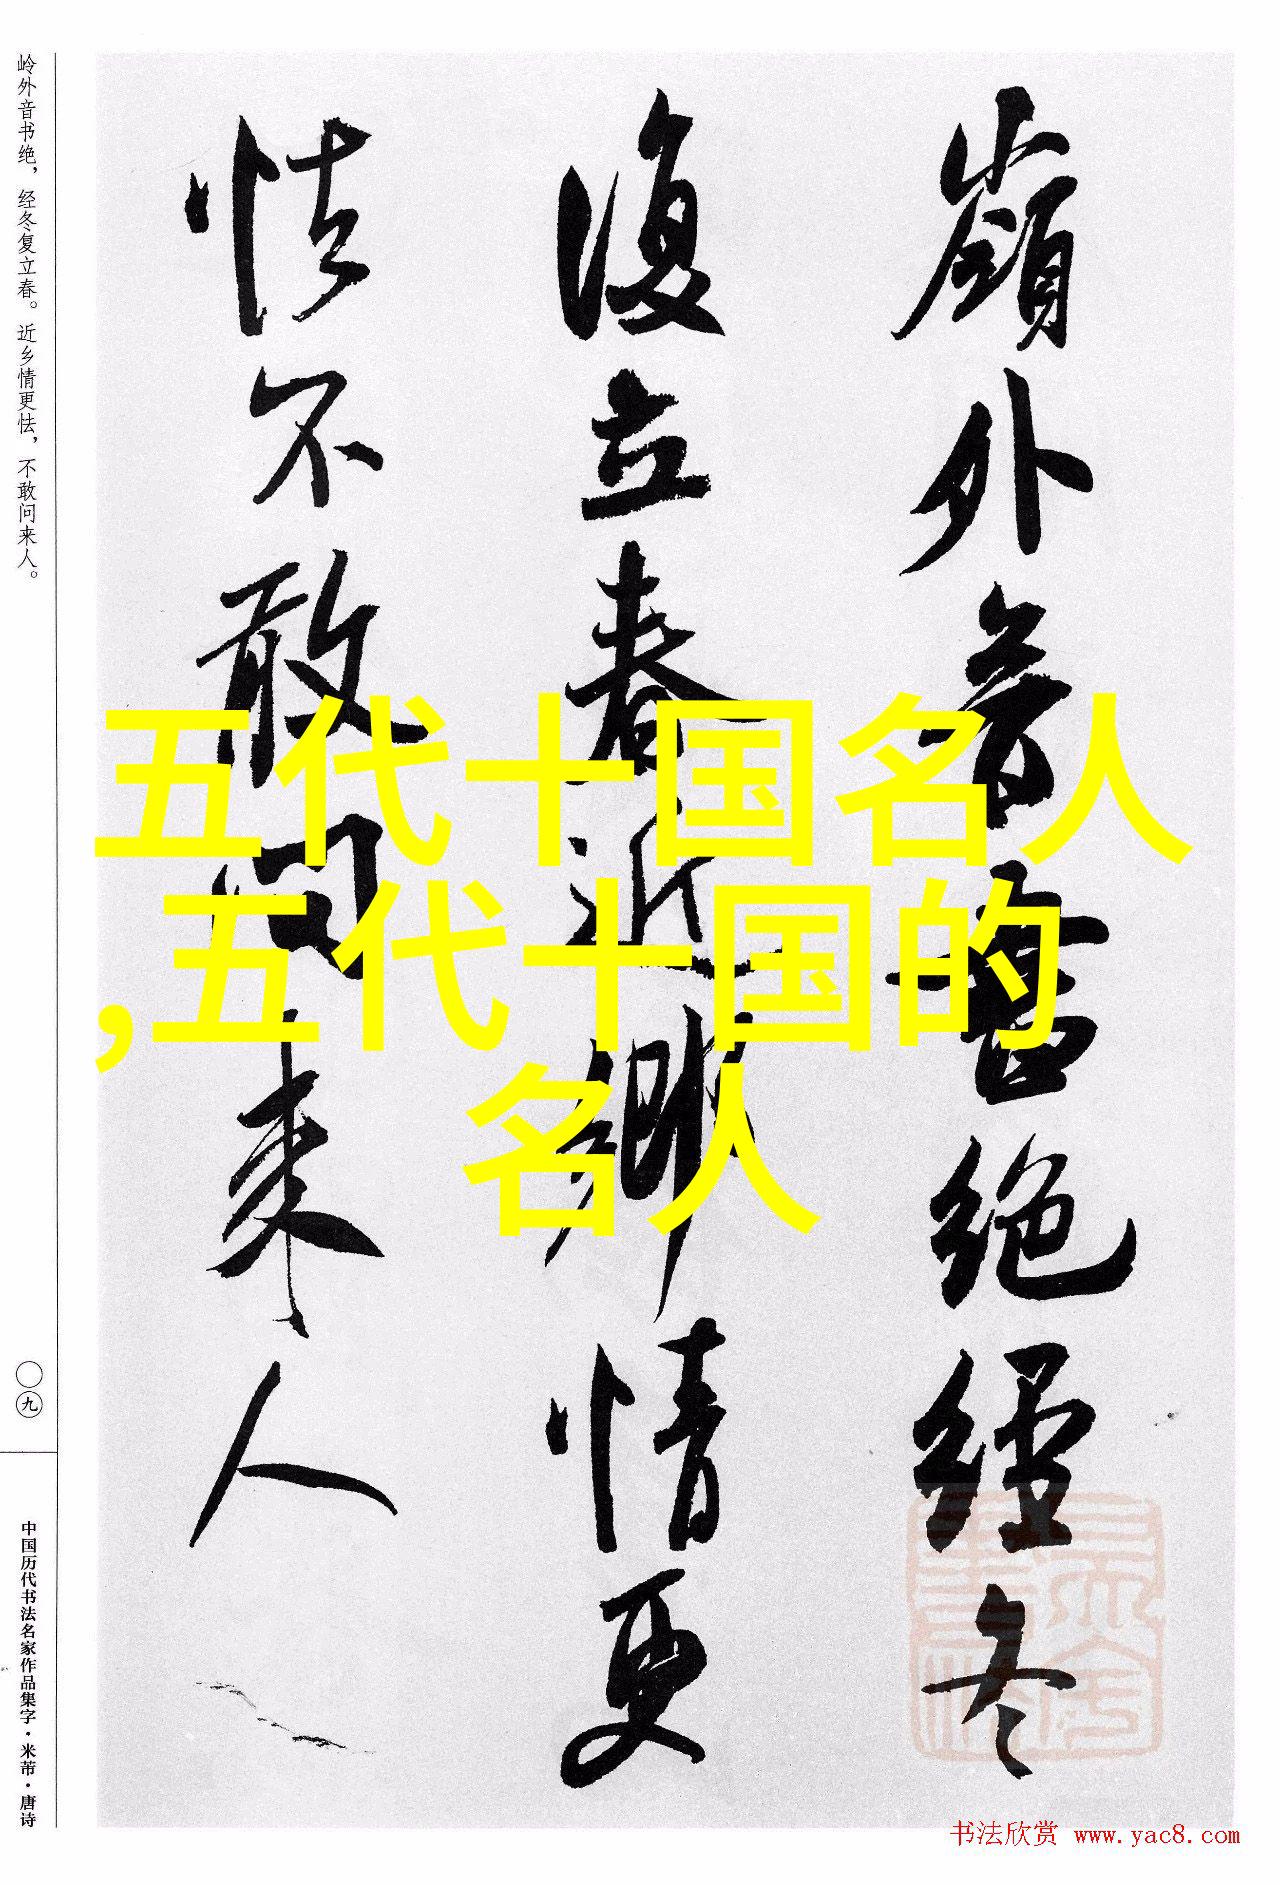 嶺外音書絕經冬
復立春近鄉情更
怯不敢問來人
岭外音书绝，经冬复立春。近乡情更怯，不敢问来人。
〇九
中国历代书法名家作品集字·米芾·唐诗
五代十国名人
,五代十国的
名人
书法欣赏 www.yac8.com